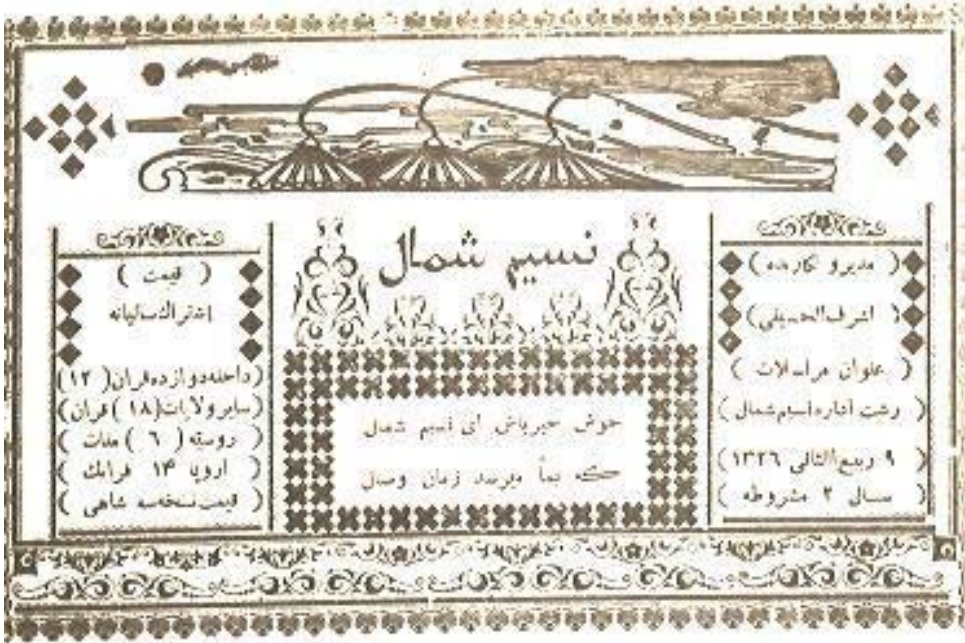 نسیم شمال
( مدیر و نگارنده )
( اشرف الحسینی )
( عنوان مراسلات )
( رشت اداره نسیم شمال )
( ۹ ربیع الثانی ۱۳۲۶ )
( سال ۲ مشروطه )
خوش خبر باش ای نسیم شمال
که بما میرسد زمان وصال
( قیمت )
اشتراک سالیانه
( داخله دوازده قران ( ۱۲ )
( سایر ولایات ( ۱۸ ) قران )
( روسیه ( ٦ ) منات )
( اروپا ۱۴ فرانک )
( قیمت نسخه سه شاهی )